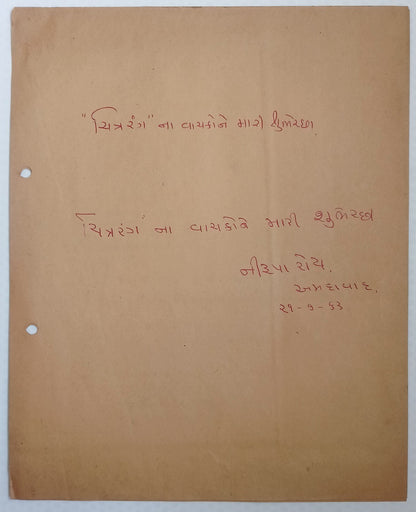 "ચિત્રરંગ" ના વાચકોને મારી શુભેચ્છા.
"ચિત્રરંગ" ના વાચકોને મારી શુભેચ્છા
નીરૂપા રોય.
અમદાવાદ.
૨૧-૭-૬૩